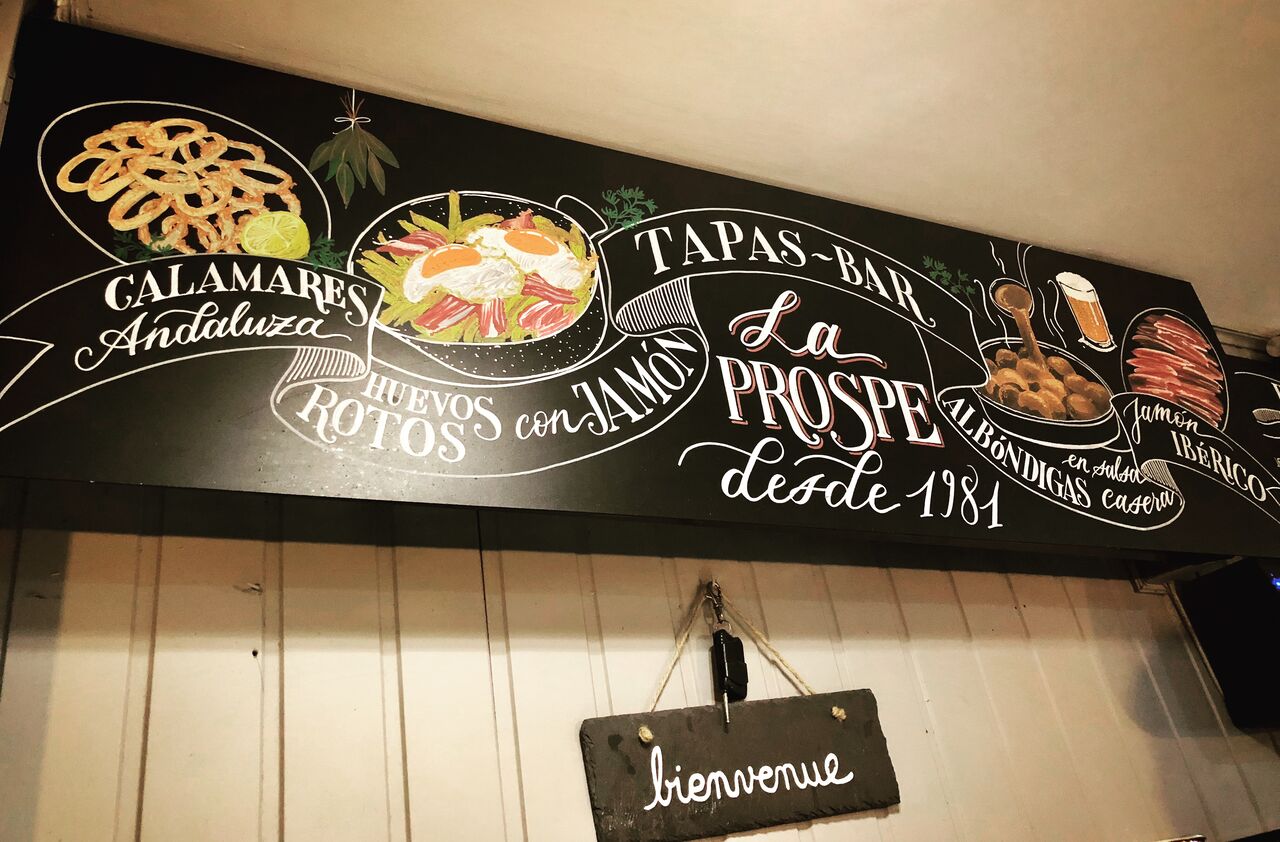 CALAMARES
Andaluza
HUEVOS
ROTOS con JAMÓN
TAPAS~BAR
La
PROSPE
desde 1981
ALBÓNDIGAS
en salsa
casera
Jamón
IBÉRICO
bienvenue